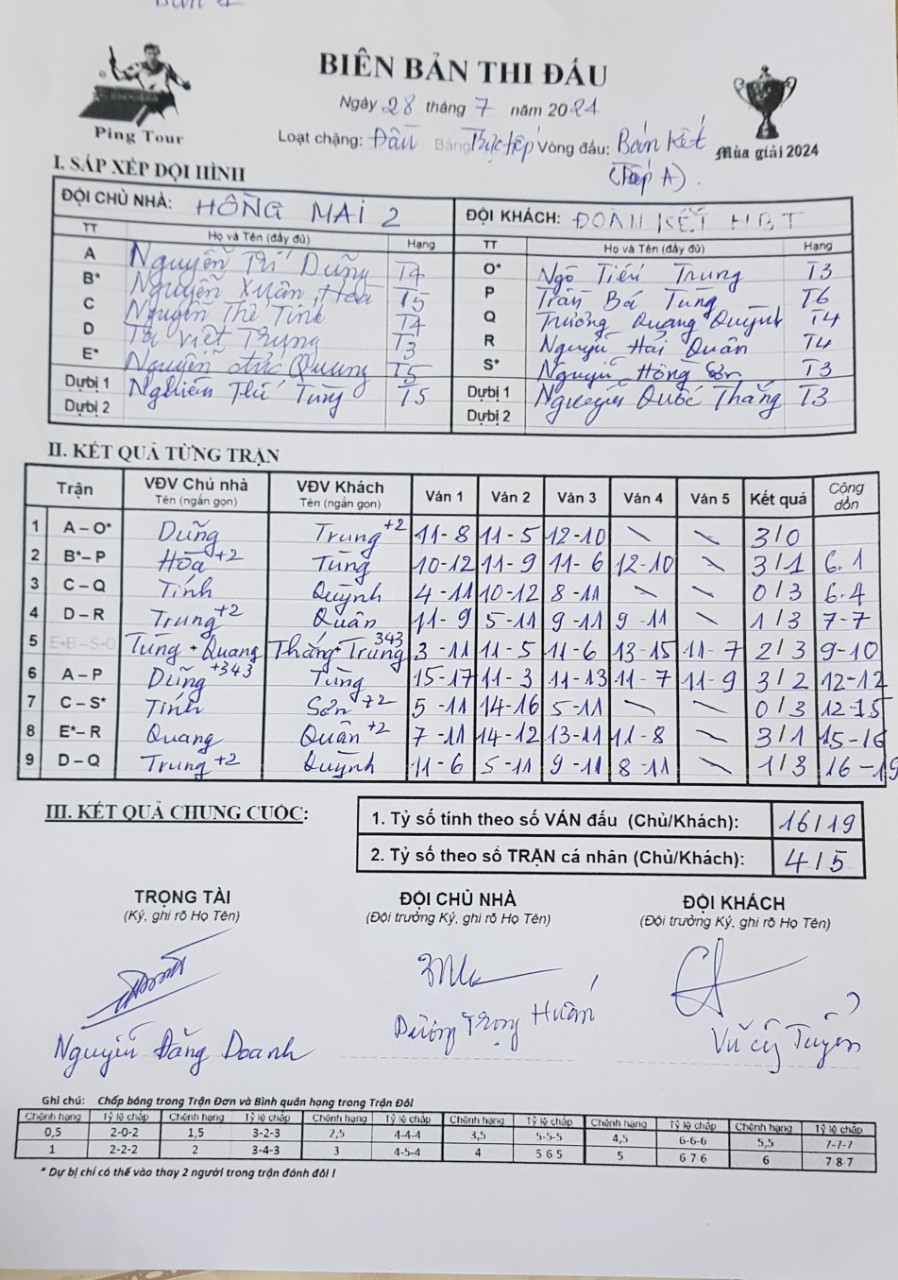 BIÊN BẢN THI ĐẤU
Ping Tour
Ngày 28 tháng 7 năm 2024
Loạt chặng: Đấu Bảng Trực tiếp Vòng đấu: Bán Kết
(Tốp A).
Mùa giải 2024
I. SẮP XẾP ĐỘI HÌNH
ĐỘI CHỦ NHÀ: HỒNG MAI 2 ĐỘI KHÁCH: ĐOÀN KẾT HBT
TT Họ và Tên (đầy đủ) Hạng TT Họ và Tên (đầy đủ) Hạng
A Nguyễn Trí Dũng T4 O* Ngô Tiến Trung T3
B* Nguyễn Xuân Hoà T5 P Trần Bá Tùng T6
C Nguyễn Thế Tính T4 Q Trương Quang Quỳnh T4
D Tạ Việt Trung T3 R Nguyễn Hải Quân T4
E* Nguyễn Đức Quang T5 S* Nguyễn Hồng Sơn T3
Dự bị 1 Nghiêm Thế Tùng T5 Dự bị 1 Nguyễn Quốc Thắng T3
Dự bị 2 Dự bị 2
II. KẾT QUẢ TỪNG TRẬN
Trận VĐV Chủ nhà Tên (ngắn gọn) VĐV Khách Tên (ngắn gọn) Ván 1 Ván 2 Ván 3 Ván 4 Ván 5 Kết quả Cộng dồn
1 A – O* Dũng Trung +2 11-8 11-5 12-10 \ \ 3/0
2 B* – P Hòa +2 Tùng 10-12 11-9 11-6 12-10 \ 3/1 6.1
3 C – Q Tính Quỳnh 4-11 10-12 8-11 \ 0/3 6.4
4 D – R Trung +2 Quân 11-9 5-11 9-11 9-11 \ 1/3 7-7
5 E+B – S+O Tùng + Quang Thắng + Trung 343 3-11 11-5 11-6 13-15 11-7 2/3 9-10
6 A – P Dũng +343 Tùng 15-17 11-3 11-13 11-7 11-9 3/2 12-12
7 C – S* Tính Sơn +2 5-11 14-16 5-11 \ \ 0/3 12-15
8 E* – R Quang Quân +2 7-11 14-12 13-11 11-8 \ 3/1 15-16
9 D – Q Trung +2 Quỳnh 11-6 5-11 9-11 8-11 \ 1/3 16-19
III. KẾT QUẢ CHUNG CUỘC:
1. Tỷ số tính theo số VÁN đấu (Chủ/Khách): 16/19
2. Tỷ số theo số TRẬN cá nhân (Chủ/Khách): 4/5
TRỌNG TÀI ĐỘI CHỦ NHÀ ĐỘI KHÁCH
(Ký, ghi rõ Họ Tên) (Đội trưởng Ký, ghi rõ Họ Tên) (Đội trưởng Ký, ghi rõ Họ Tên)
Nguyễn Đăng Doanh Dương Trọng Huấn Vũ Tuyển
Ghi chú: Chấp bóng trong Trận Đơn và Bình quân hạng trong Trận Đôi
Chênh hạng Tỷ lệ chấp Chênh hạng Tỷ lệ chấp Chênh hạng Tỷ lệ chấp Chênh hạng Tỷ lệ chấp Chênh hạng Tỷ lệ chấp Chênh hạng Tỷ lệ chấp
0,5 2-0-2 1,5 3-2-3 2,5 4-4-4 3,5 5-5-5 4,5 6-6-6 5,5 7-7-7
1 2-2-2 2 3-4-3 3 4-5-4 4 5 6 5 5 6 7 6 6 7 8 7
* Dự bị chỉ có thể vào thay 2 người trong trận đánh đôi !